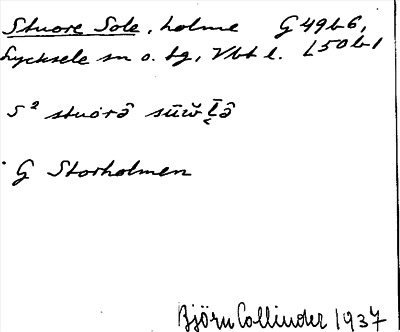 Stuore Sole, holme G 49b6,
Lycksele sn o. tg, Vbt l. L50b1
S² stuorâ sūw̆l̄â
G Storholmen
Björn Collinder 1937